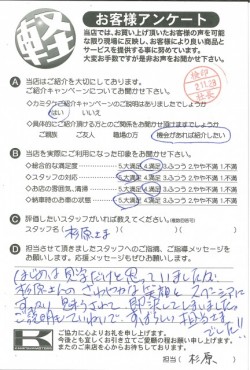 軽
お客様アンケート
当店では、お買い上げ頂いたお客様の声を可能
な限り現場に反映し、お客様により良い商品と
サービスを提供する事に努めています。
大変お手数ですが是非お声をお聞かせ下さい。
A 当店はご紹介を大切にしております。
ご紹介キャンペーンについてお聞かせ下さい。
◇カミタケご紹介キャンペーンがあることをご説明ありましたでしょうか
はい いいえ
◇具体的にご紹介頂ける方との
ご親族 ご友人 職場の方 機会があれば紹介したい
B 当店を実際にご利用になった印象をお聞かせ下さい。
◇総合的な満足度 5.大満足 4.満足 3.ふつう 2.やや不満 1.不満
◇スタッフの対応 5.大満足 4.満足 3.ふつう 2.やや不満 1.不満
◇お店の雰囲気、清掃 5.大満足 4.満足 3.ふつう 2.やや不満 1.不満
◇納車時のお車の状態 5.大満足 4.満足 3.ふつう 2.やや不満 1.不満
C 評価したいスタッフがいれば教えてください。
スタッフ名( 杉原さま )
D 担当させて頂きましたスタッフへのご指摘、ご指導メッセージを
お願いします。応援メッセージもぜひお願いします。
はじめは見学だけと思っていましたが
杉原さんのさわやかな笑顔と
すっかり魅せられて即決してしまいました
ご説明もていねいで、すばらしい担当者
でした!!
K
ご協力に心よりお礼を申し上げます。
今後とも宜しくお引き立てご愛顧のお願い申し上げます。
またのご来店を心からお待ちしております。
担当( 杉原 )